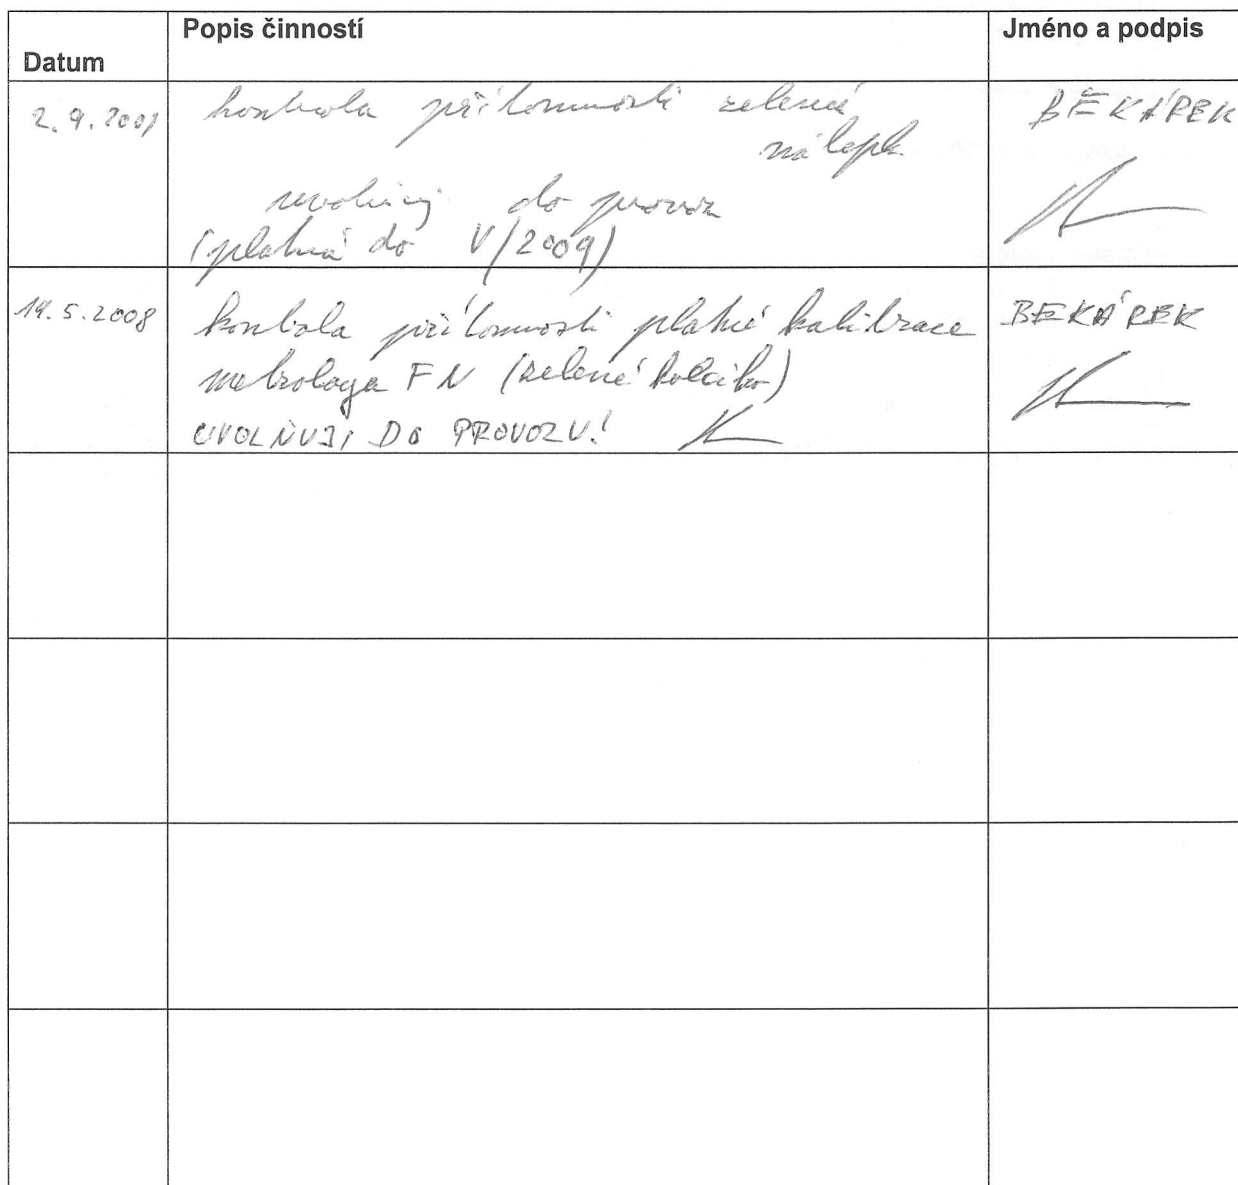 Datum
Popis činností
Jméno a podpis
2.9.2007
kontrola přítomnosti zelené
nálepk
BĚKÁREK
uvolňuj do provoz
(platná do V/2009)
19.5.2008
kontrola přítomnosti platné kalibrace
BEKÁREK
metrologa FN (zelené kolečko)
UVOLŇUJI DO PROVOZU!